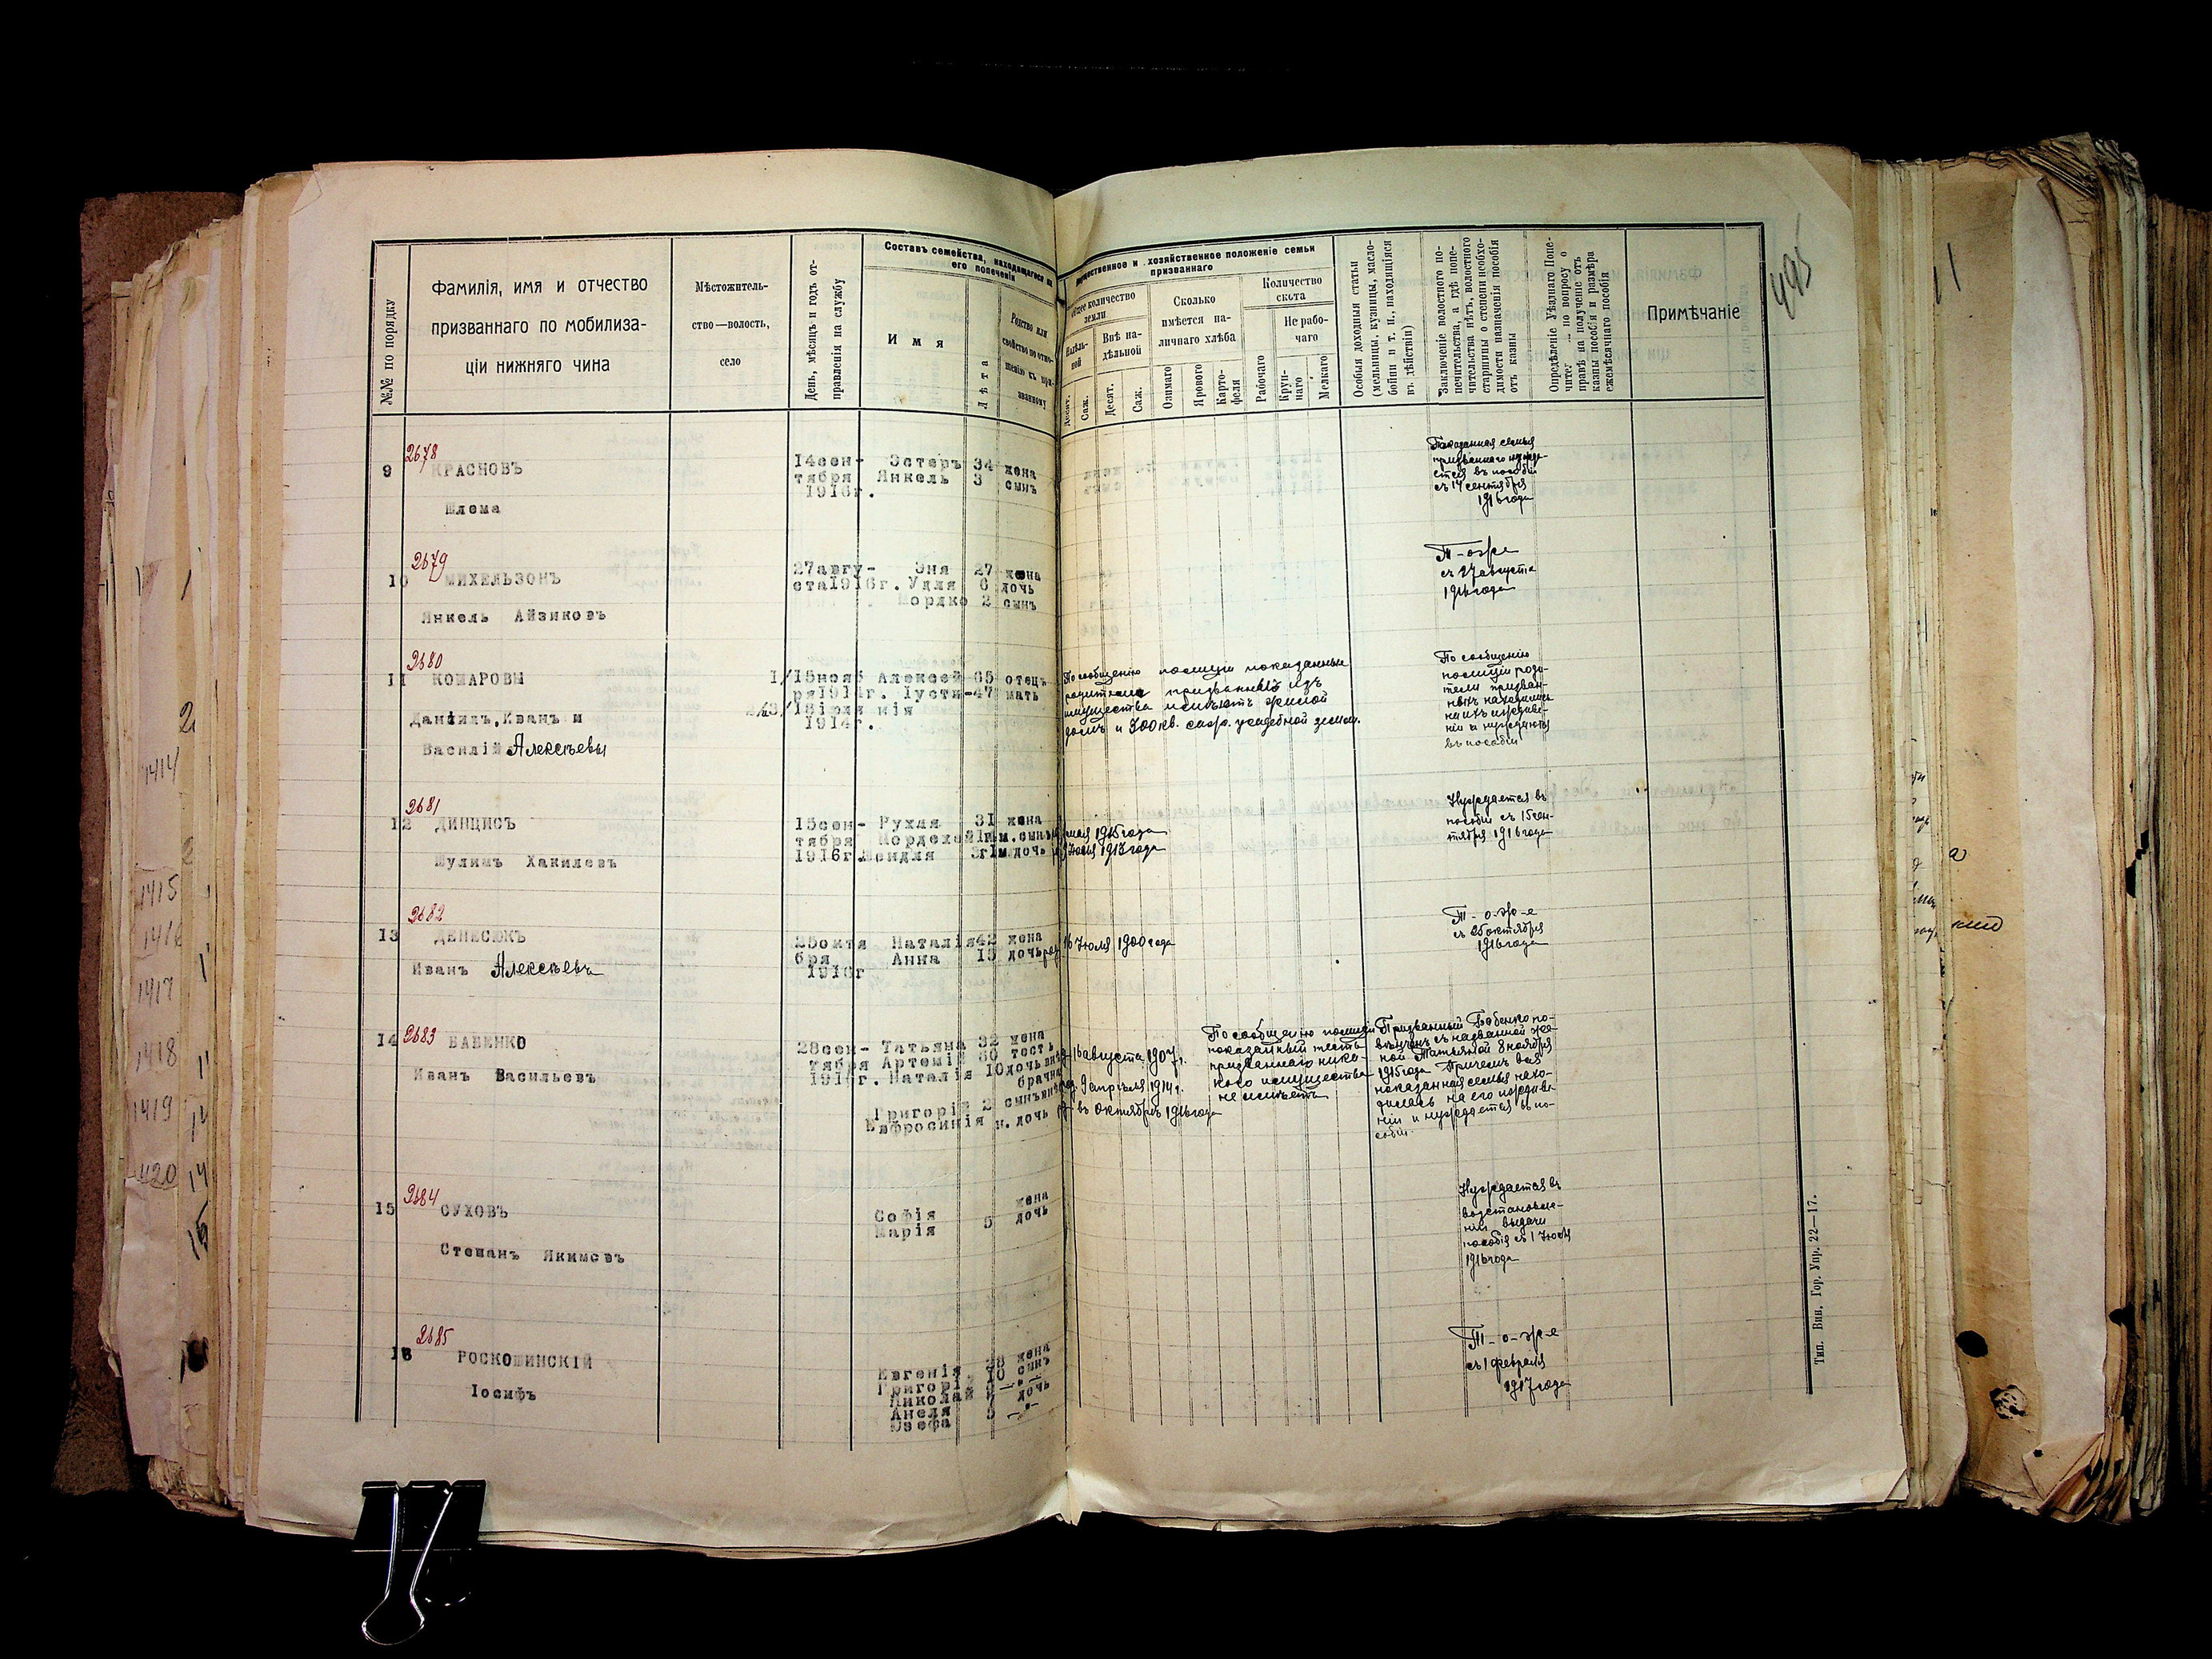 495
№№ по порядку
Фамилія, имя и отчество
призваннаго по мобилиза-
ціи нижняго чина
Мѣстожитель-
ство—волость,
село
День, мѣсяцъ и годъ от-
правленія на службу
Составъ семейства, находящагося на
его попеченіи
И м я
Лѣта
Родство или
свойство по отно-
шенію къ при-
званному
Имущественное и хозяйственное положеніе семьи
призваннаго
Общее количество
земли
Надѣль-
ной
Внѣ на-
дѣльной
Десят.
Саж.
Десят.
Саж.
Сколько
имѣется на-
личнаго хлѣба
Озимаго
Ярового
Карто-
феля
Количество
скота
Рабочаго
Не рабо-
чаго
Круп-
наго
Мелкаго
Особыя доходныя статьи
(мельницы, кузницы, масло-
бойни и т. п., находящіяся
въ дѣйствіи)
Заключеніе волостного по-
печительства, а гдѣ попе-
чительства нѣтъ, волостного
старшины о степени необхо-
димости назначенія пособія
отъ казны
Опредѣленіе Уѣзднаго Попе-
чите по вопросу о
правѣ на полученіе отъ
казны пособія и размѣра
ежемѣсячнаго пособія
Примѣчаніе
2678
9 КРАСНОВЪ
Шлема
14сен-
тября
1916г.
Эстеръ 34 жена
Янкель 3 сынъ
Показанная семья
призваннаго нужда-
ется въ пособіи
съ 14 сентября
1916 года
2679
10 МИХЕЛЬЗОНЪ
Янкель Айзиковъ
27авгу-
ста1916г.
Эня 27 жена
Удля 6 дочь
Мордко 2 сынъ
Т-оже
съ 27 августа
1916 года
2680
11 КОМАРОВЫ
Даніилъ, Иванъ и
Василій Алексѣевы
1/15нояб
ря1914г.
2и3/18іюля
1914г.
Алексей 65 отецъ
Іусти- 47 мать
нія
По сообщенію полиціи показанные
родители призванныхъ изъ
имущества имѣютъ жилой
домъ и 300 кв. саж. усадебной земли.
По сообщенію
полиціи роди-
тели призван-
ныхъ находились
на ихъ иждиве-
ніи и нуждаются
въ пособіи
2681
12 ДИНЦИСЪ
Шулимъ Хакилевъ
15сен-
тября
1916г.
Рухля 31 жена
Мордехай 1г.м. сынъ
Шендля 3г1м дочь
мая 1915 года
Іюля 1913 года
Нуждается въ
пособіи съ 15 сен-
тября 1916 года
2682
13 ДЕНИСЮКЪ
Иванъ Алексѣевъ
25октя
бря
1916г
Наталія 42 жена
Анна 15 дочь род.
16 Іюля 1900 года
Т-о-ж-е
съ 25 октября
1916 года
2683
14 БАБЕНКО
Иванъ Васильевъ
28сен-
тября
1916г.
Татьяна 32 жена
Артемій 60 тесть
Наталія 10 дочь внѣ
брачная
Григорій 2 сынъ
Евфросинія н. дочь
16 августа 1907 г.
род. 9 апрѣля 1914 г.
въ Октябрѣ 1916 года
По сообщенію полиціи
показанный тесть
призваннаго ника-
кого имущества
не имѣетъ
Призванный Бабенко по-
вѣнчанъ съ названной же-
ной Татьяной 8 ноября
1915 года Причемъ вся
показанная семья нахо-
дилась на его иждиве-
ніи и нуждается въ по-
собіи.
2684
15 СУХОВЪ
Степанъ Якимовъ
Софія жена
Марія 5 дочь
Нуждается въ
возстановле-
ніи выдачи
пособія съ 1 Іюля
1916 года
2685
16 РОСКОШИНСКІЙ
Іосифъ
Евгенія 38 жена
Григорій 10 сынъ
Николай —"—
Анеля 7 дочь
Юзефа 5 —"—
Т-о-ж-е
съ 1 февраля
1917 года
Тип. Вин. Гор. Упр. 22—17.
1414
1415
1416
1417
1418
1419
1420